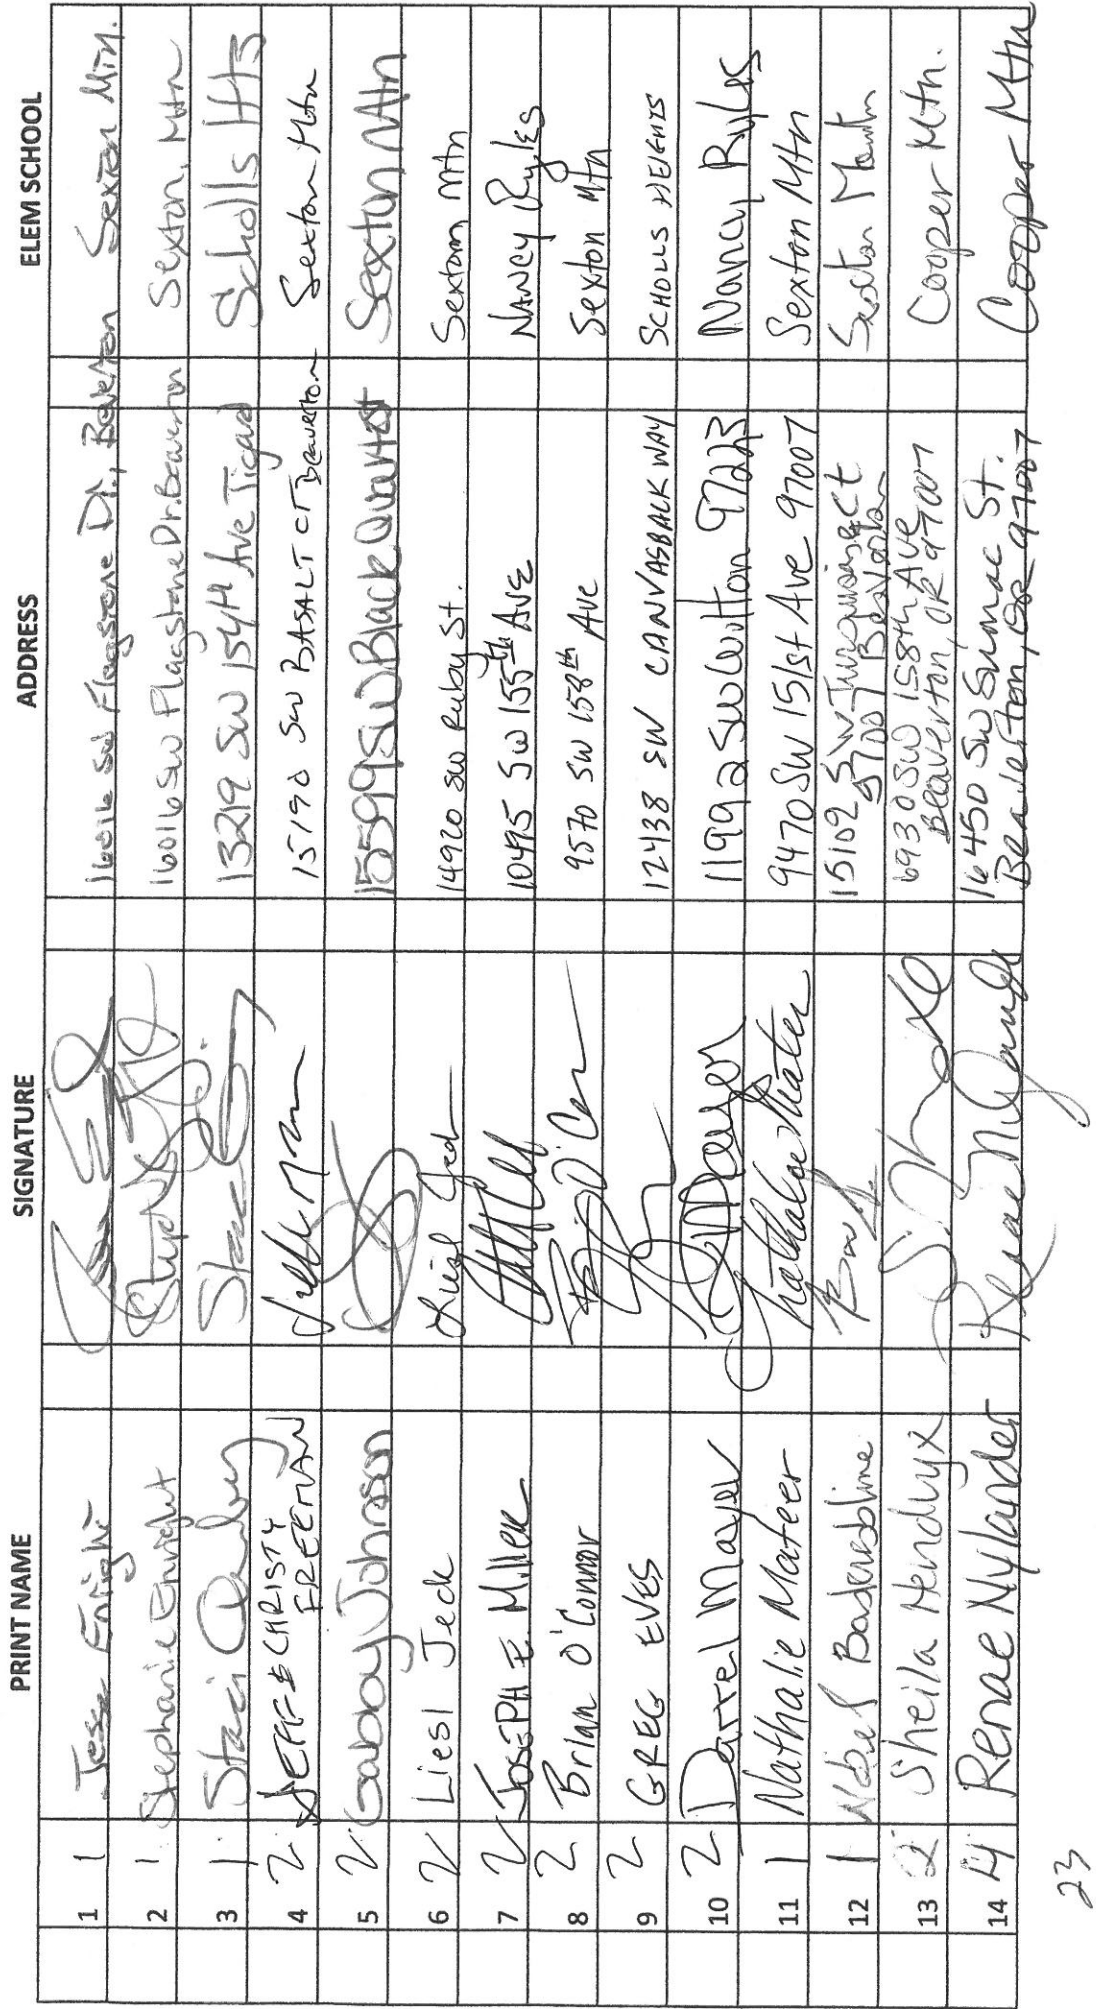 PRINT NAME SIGNATURE ADDRESS ELEM SCHOOL
1 1 Jesse Enright 16016 SW Flagstone Dr., Beaverton Sexton Mtn.
2 1 Stephanie Enright 16016 SW Flagstone Dr. Beaverton Sexton, Mtn
3 1 Staci 13219 SW 154th Ave Tigard Scholls Hts
4 2 JEFF & CHRISTY FREEMAN 15190 SW BASALT CT Beaverton Sexton Mtn
5 2 Gabby Johnson 15599 SW Black Quartz St Sexton Mtn
6 2 Liesl Jeck 14920 SW Ruby St. Sexton Mtn
7 2 JOSEPH E Miller 10495 SW 155th AVE NANCY Ryles
8 2 Brian O'Connor 9570 SW 158th Ave Sexton Mtn
9 2 GREG EVES 12438 SW CANVASBACK WAY SCHOLLS HEIGHTS
10 2 Darrel Mayer 11992 SW Wilton 97223 Nancy Ryles
11 1 Nathalie Mateer Nathalie Mateer 9470 SW 151st Ave 97007 Sexton Mtn
12 1 15102 SW Turquoise Ct
97007 Beaverton Sexton
13 2 Sheila Hendryx 6930 SW 158th Ave
Beaverton, OR 97007 Cooper Mtn.
14 4 Renae Nylander 16450 SW Sumac St.
Beaverton, OR 97007 Cooper Mtn
23